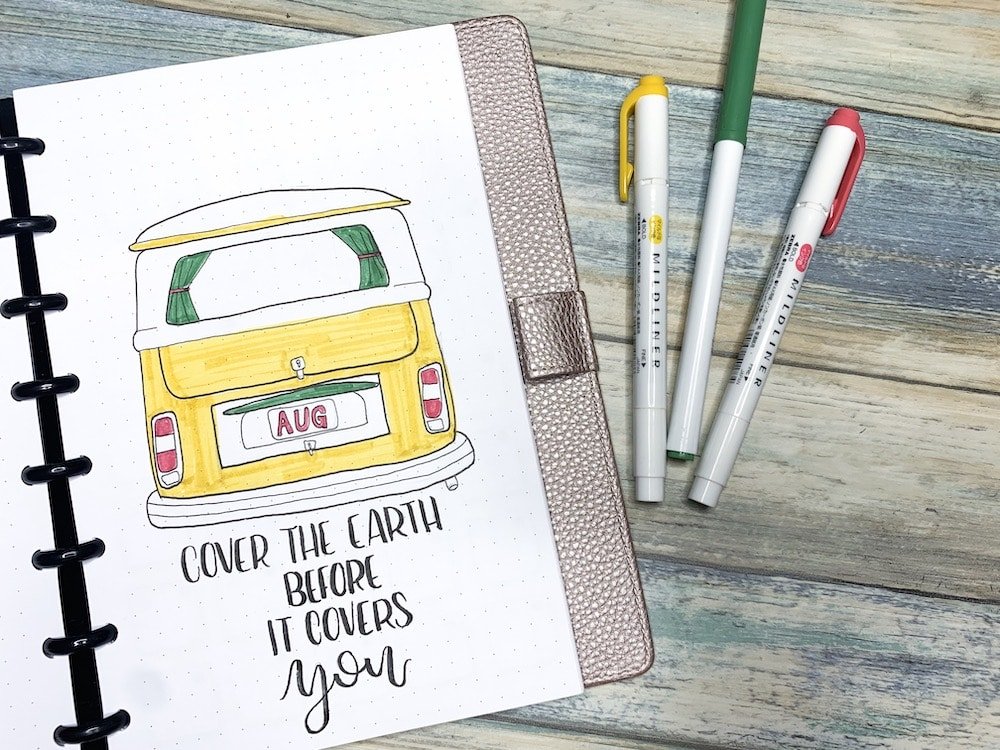 AUG
COVER THE EARTH
BEFORE
IT COVERS
you
BOLD
MILDLINER
FINE
BOLD
MILDLINER